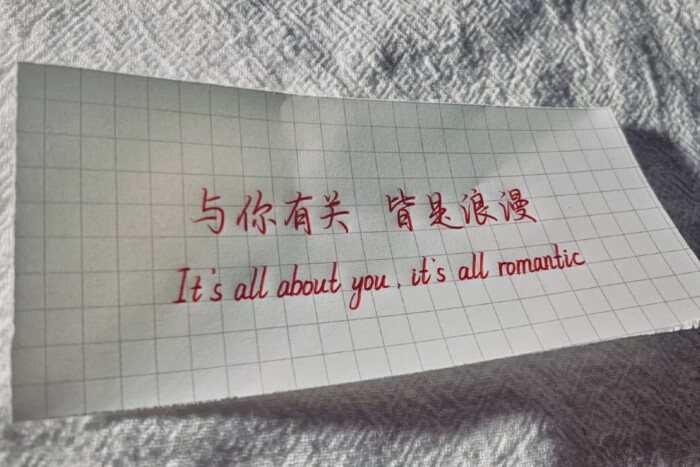 与你有关 皆是浪漫
It's all about you, it's all romantic